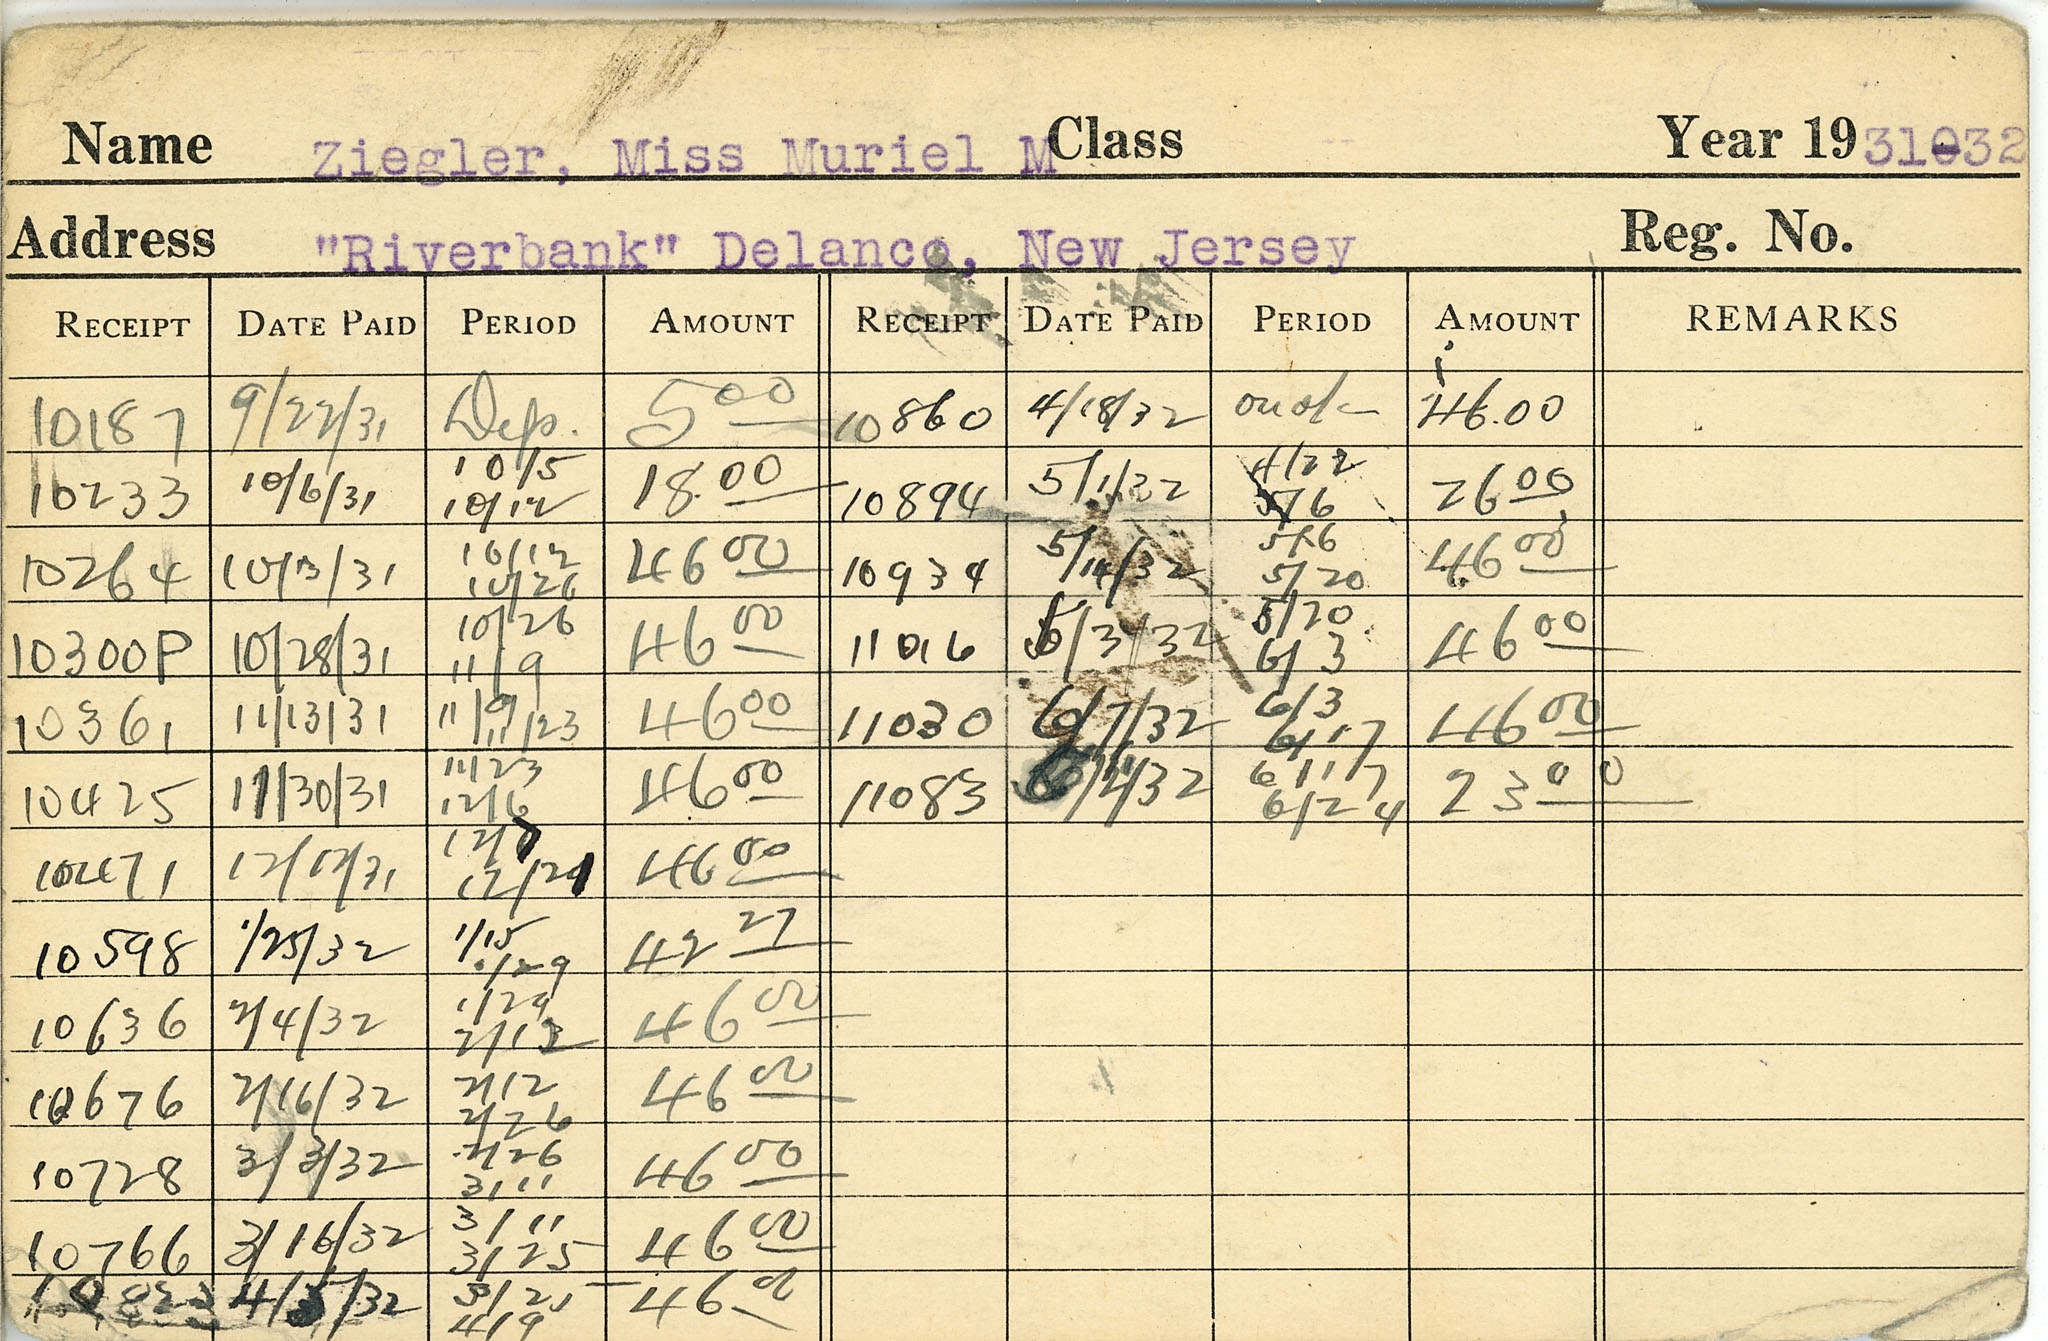 Name Ziegler, Miss Muriel M Class Year 19 31-32
Address "Riverbank" Delanco, New Jersey Reg. No.
RECEIPT DATE PAID PERIOD AMOUNT RECEIPT DATE PAID PERIOD AMOUNT REMARKS
10187 9/22/31 Dep. 5 00 10860 4/18/32 46.00
10/5 4/22
10233 10/6/31 10/12 18.00 10894 5/1/32 5/6 26 00
10/12 5/6
10264 10/13/31 10/26 46 00 10934 5/14/32 5/20 46 00
10/26 5/20
10300P 10/28/31 11/9 46 00 11016 5/31/32 6/3 46 00
11/9 6/3
10361 11/13/31 11/23 46 00 11030 6/7/32 6/17 46 00
11/23 6/17
10425 11/30/31 12/6 46 00 11083 32 6/24 23 00
12/7
10471 12/12/31 12/21 46 00
1/15
10598 1/25/32 1/29 42 27
1/29
10636 2/4/32 2/12 46 00
2/12
10676 2/16/32 2/26 46 00
2/26
10728 3/3/32 3/11 46 00
3/11
10766 3/16/32 3/25 46 00
3/25
10823 4/5/32 4/9 46